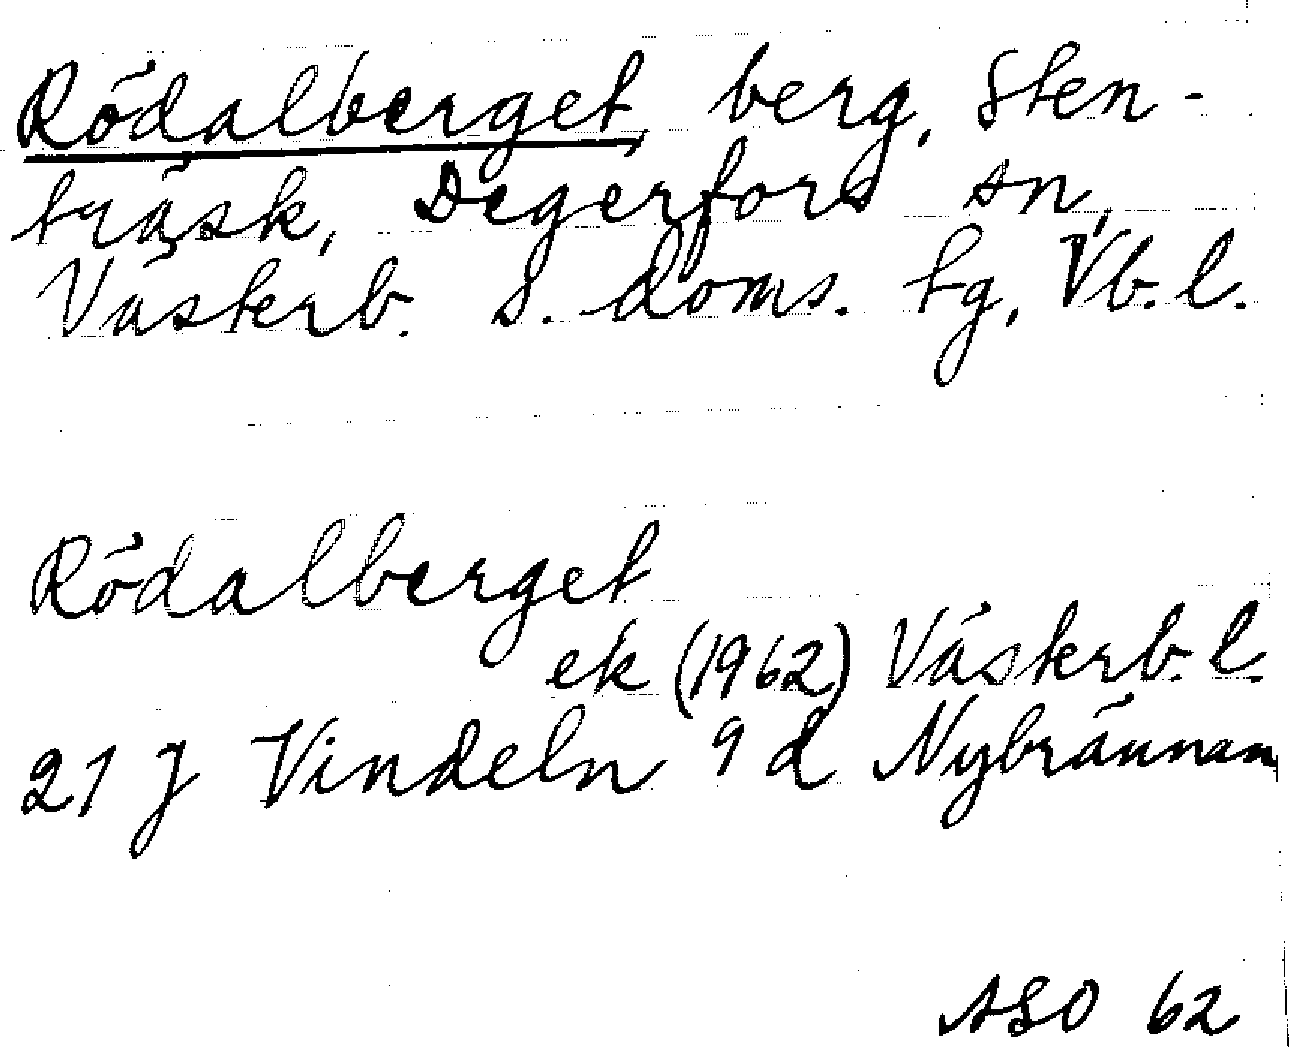 Rödalberget, berg, Sten-
träsk, Degerfors sn,
Västerb. s. doms. tg, Vb. l.
Rödalberget
ek (1962) Västerb. l.
21 J Vindeln 9 d Nybrännan
ASO 62